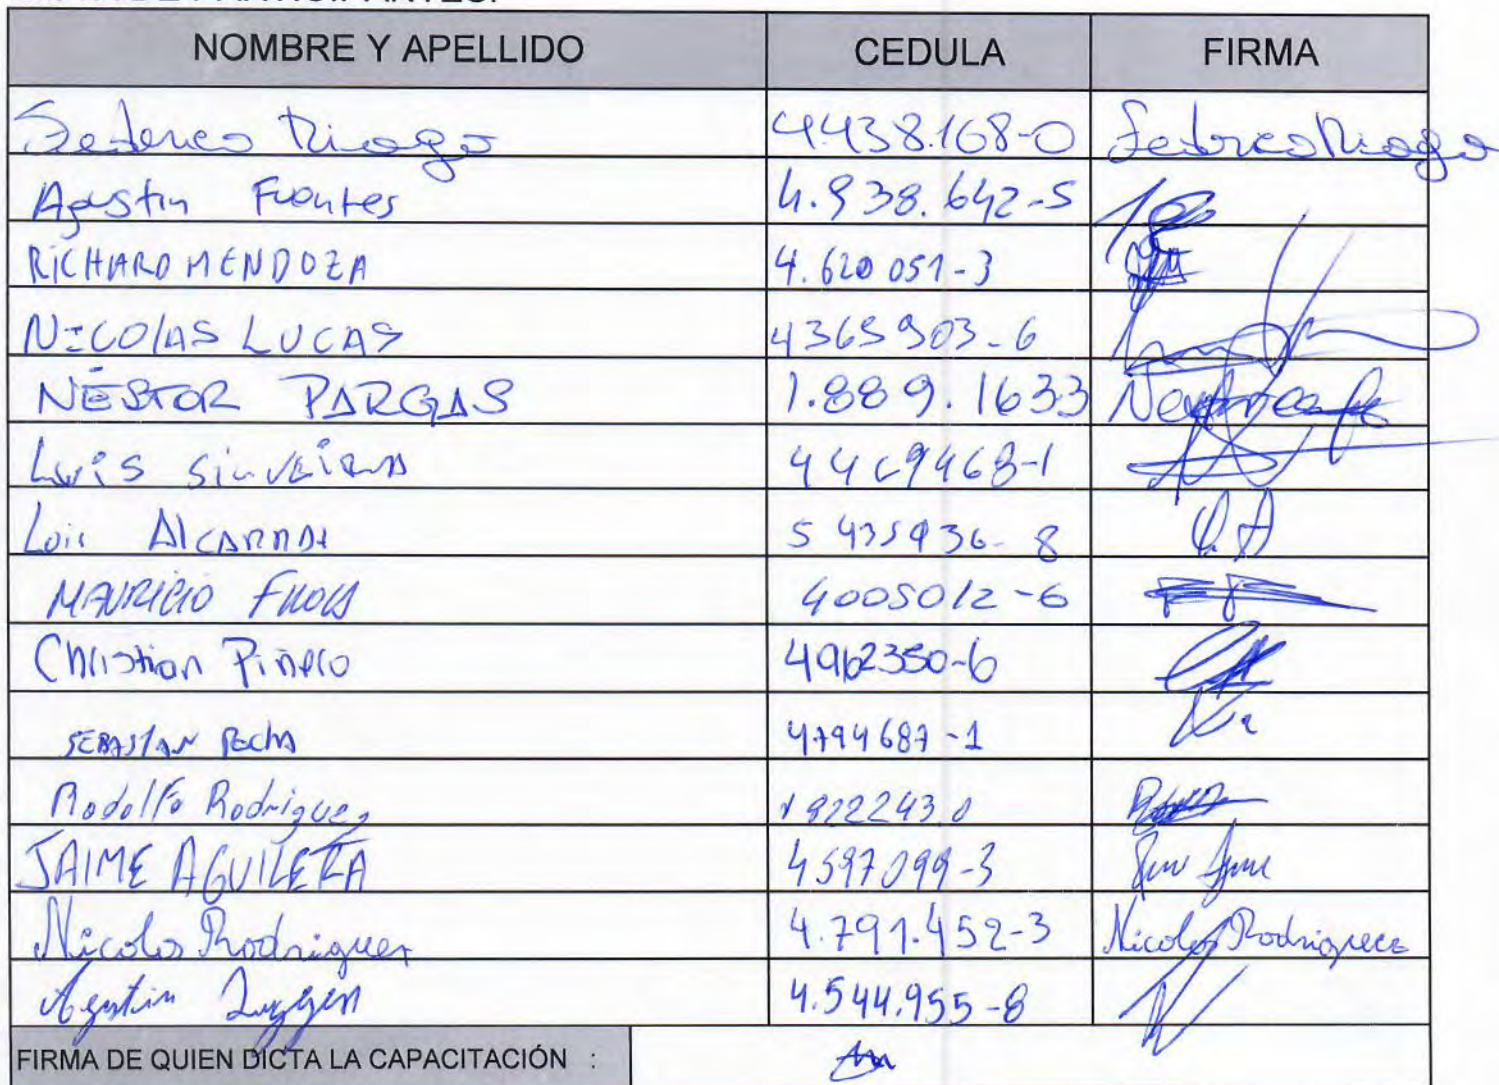 NOMBRE Y APELLIDO CEDULA FIRMA
Federico Riogo 4.438.168-0 Federico Riogo
Agustin Fuentes 4.938.642-5
RICHARD MENDOZA 4.620 051-3
NICOLAS LUCAS 4365903-6
NESTOR PARGAS 1.889.1633
Luis SilvEiRA 4469468-1
Luis 5 435936-8
MAURICIO 4005012-6
Christian Piñero 4962350-6
SEBASTIAN ROCHA 4794687-1
Rodolfo Rodriguez 1822243 0
JAIME AGUILERA 4597099-3
Nicolas Rodriguez 4.791.452-3 Nicolas Rodriguez
Agustin 4.544.955-8
FIRMA DE QUIEN DICTA LA CAPACITACIÓN :